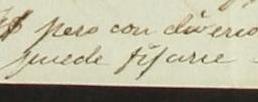 pero con diverso
puede fijarse